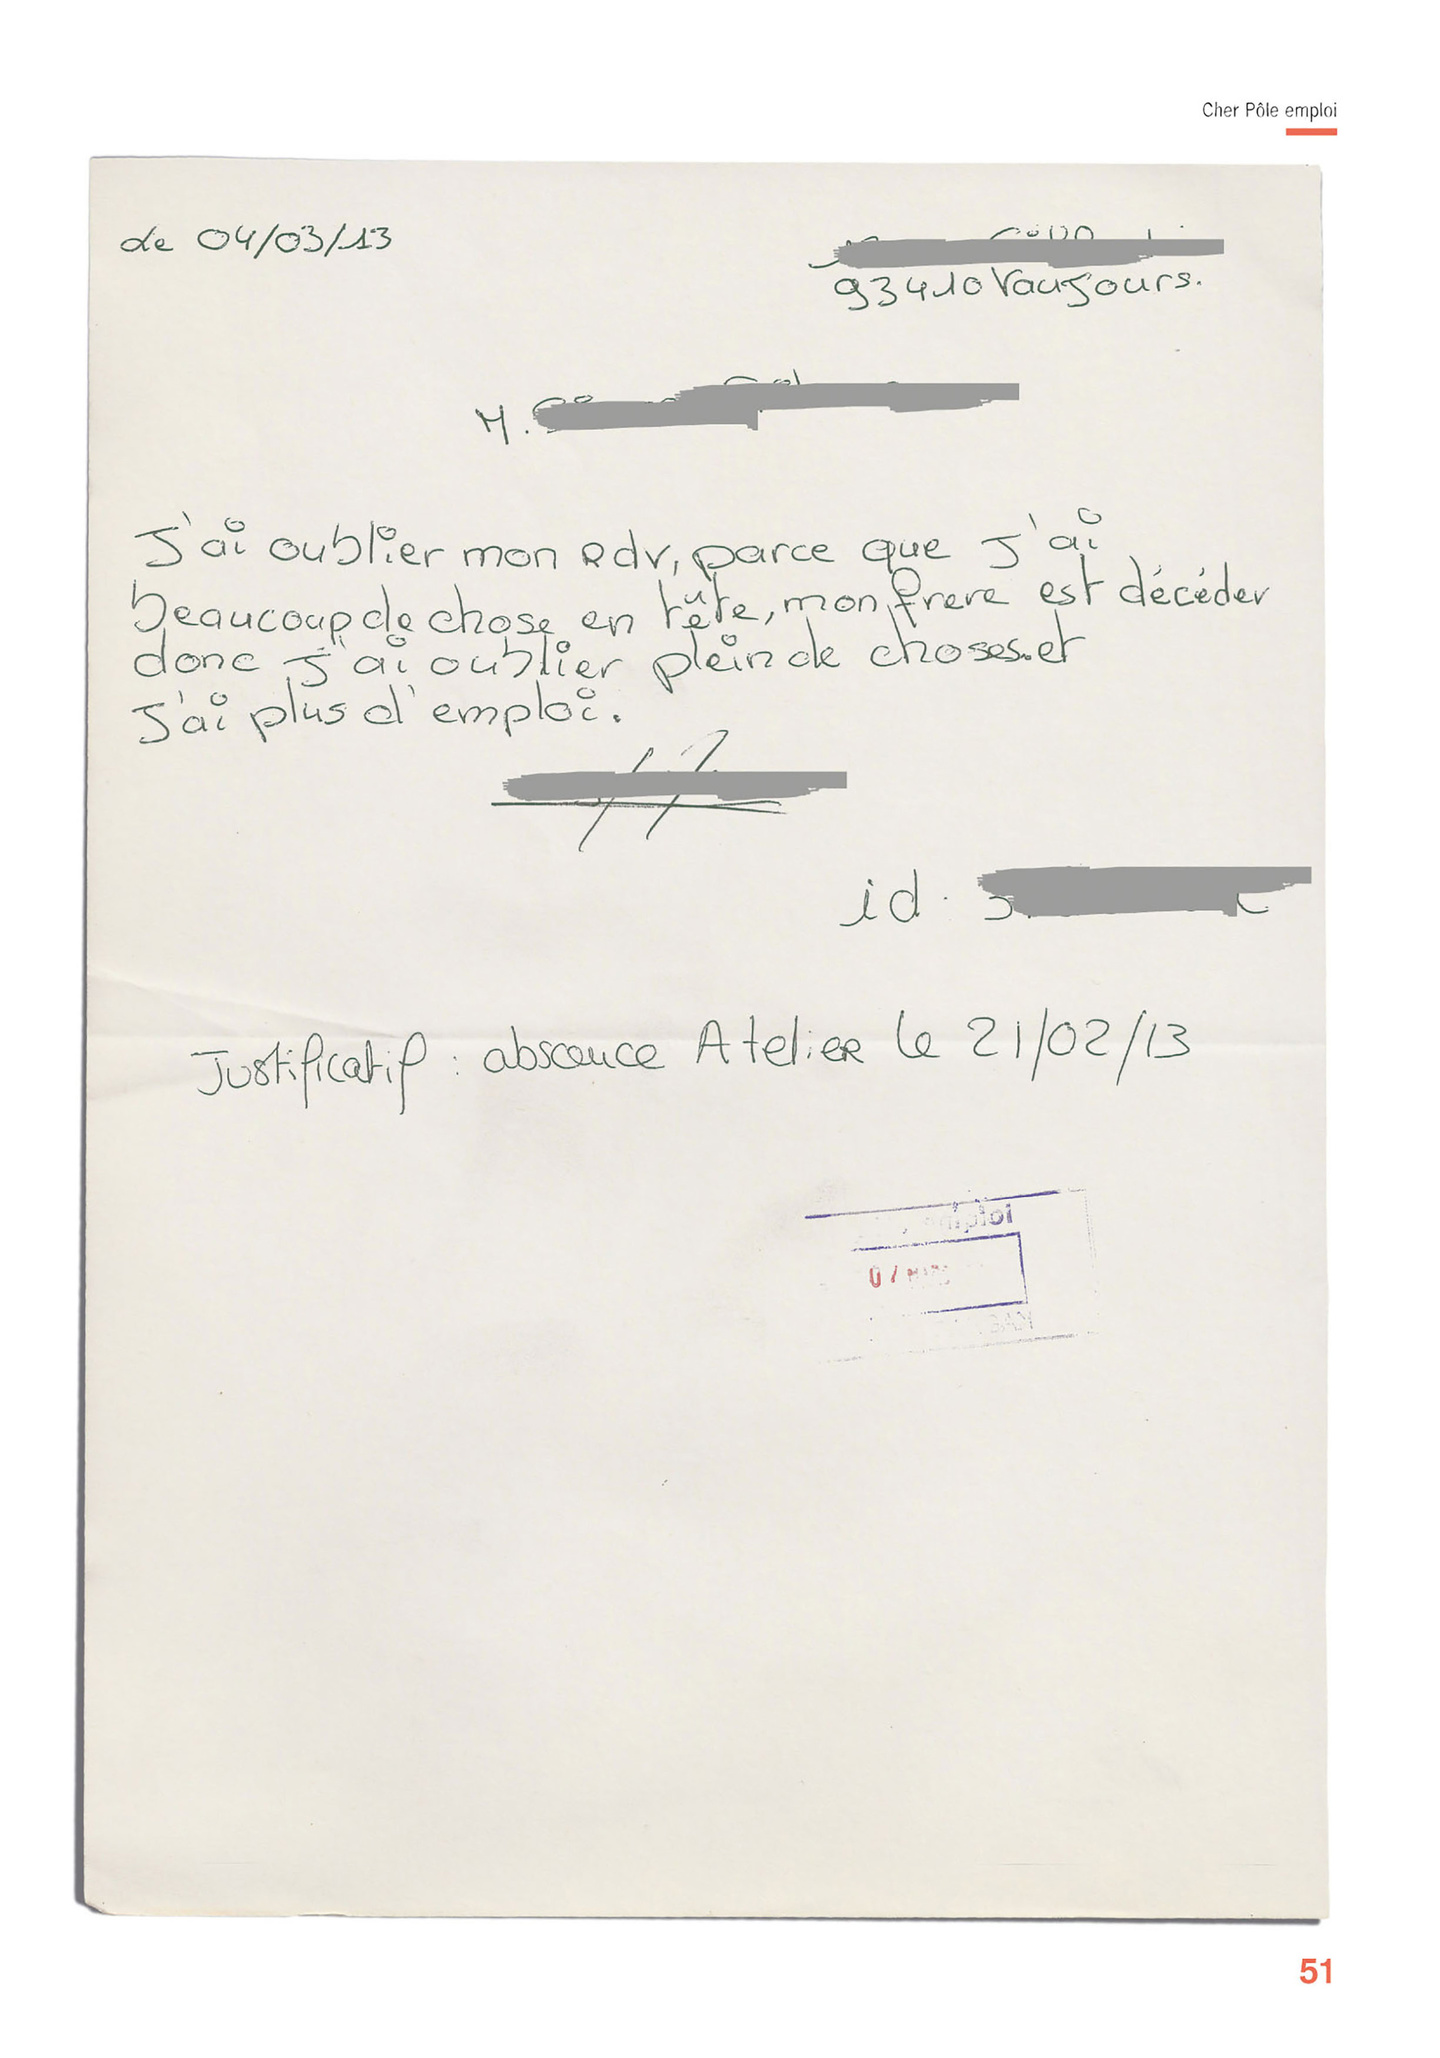 Cher Pôle emploi
de 04/03/13
93410 Vaujours.
M.
J'ai oublier mon Rdv, parce que J'ai
beaucoup de chose en tête, mon frere est décéder
donc J'ai oublier plein de choses. et
J'ai plus d'emploi.
id.
Justificatif : absence Atelier le 21/02/13
emploi
51